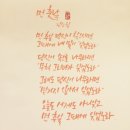 먼 훗날
김소월
먼 훗날 당신이 찾으시면
그때에 내 말이 잊었노라
당신이 속으로 나무라면
무척 그리다가 잊었노라
그래도 당신이 나무라면
믿기지 않아서 잊었노라
오늘도 어제도 아니 잊고
먼 훗날 그때에 잊었노라